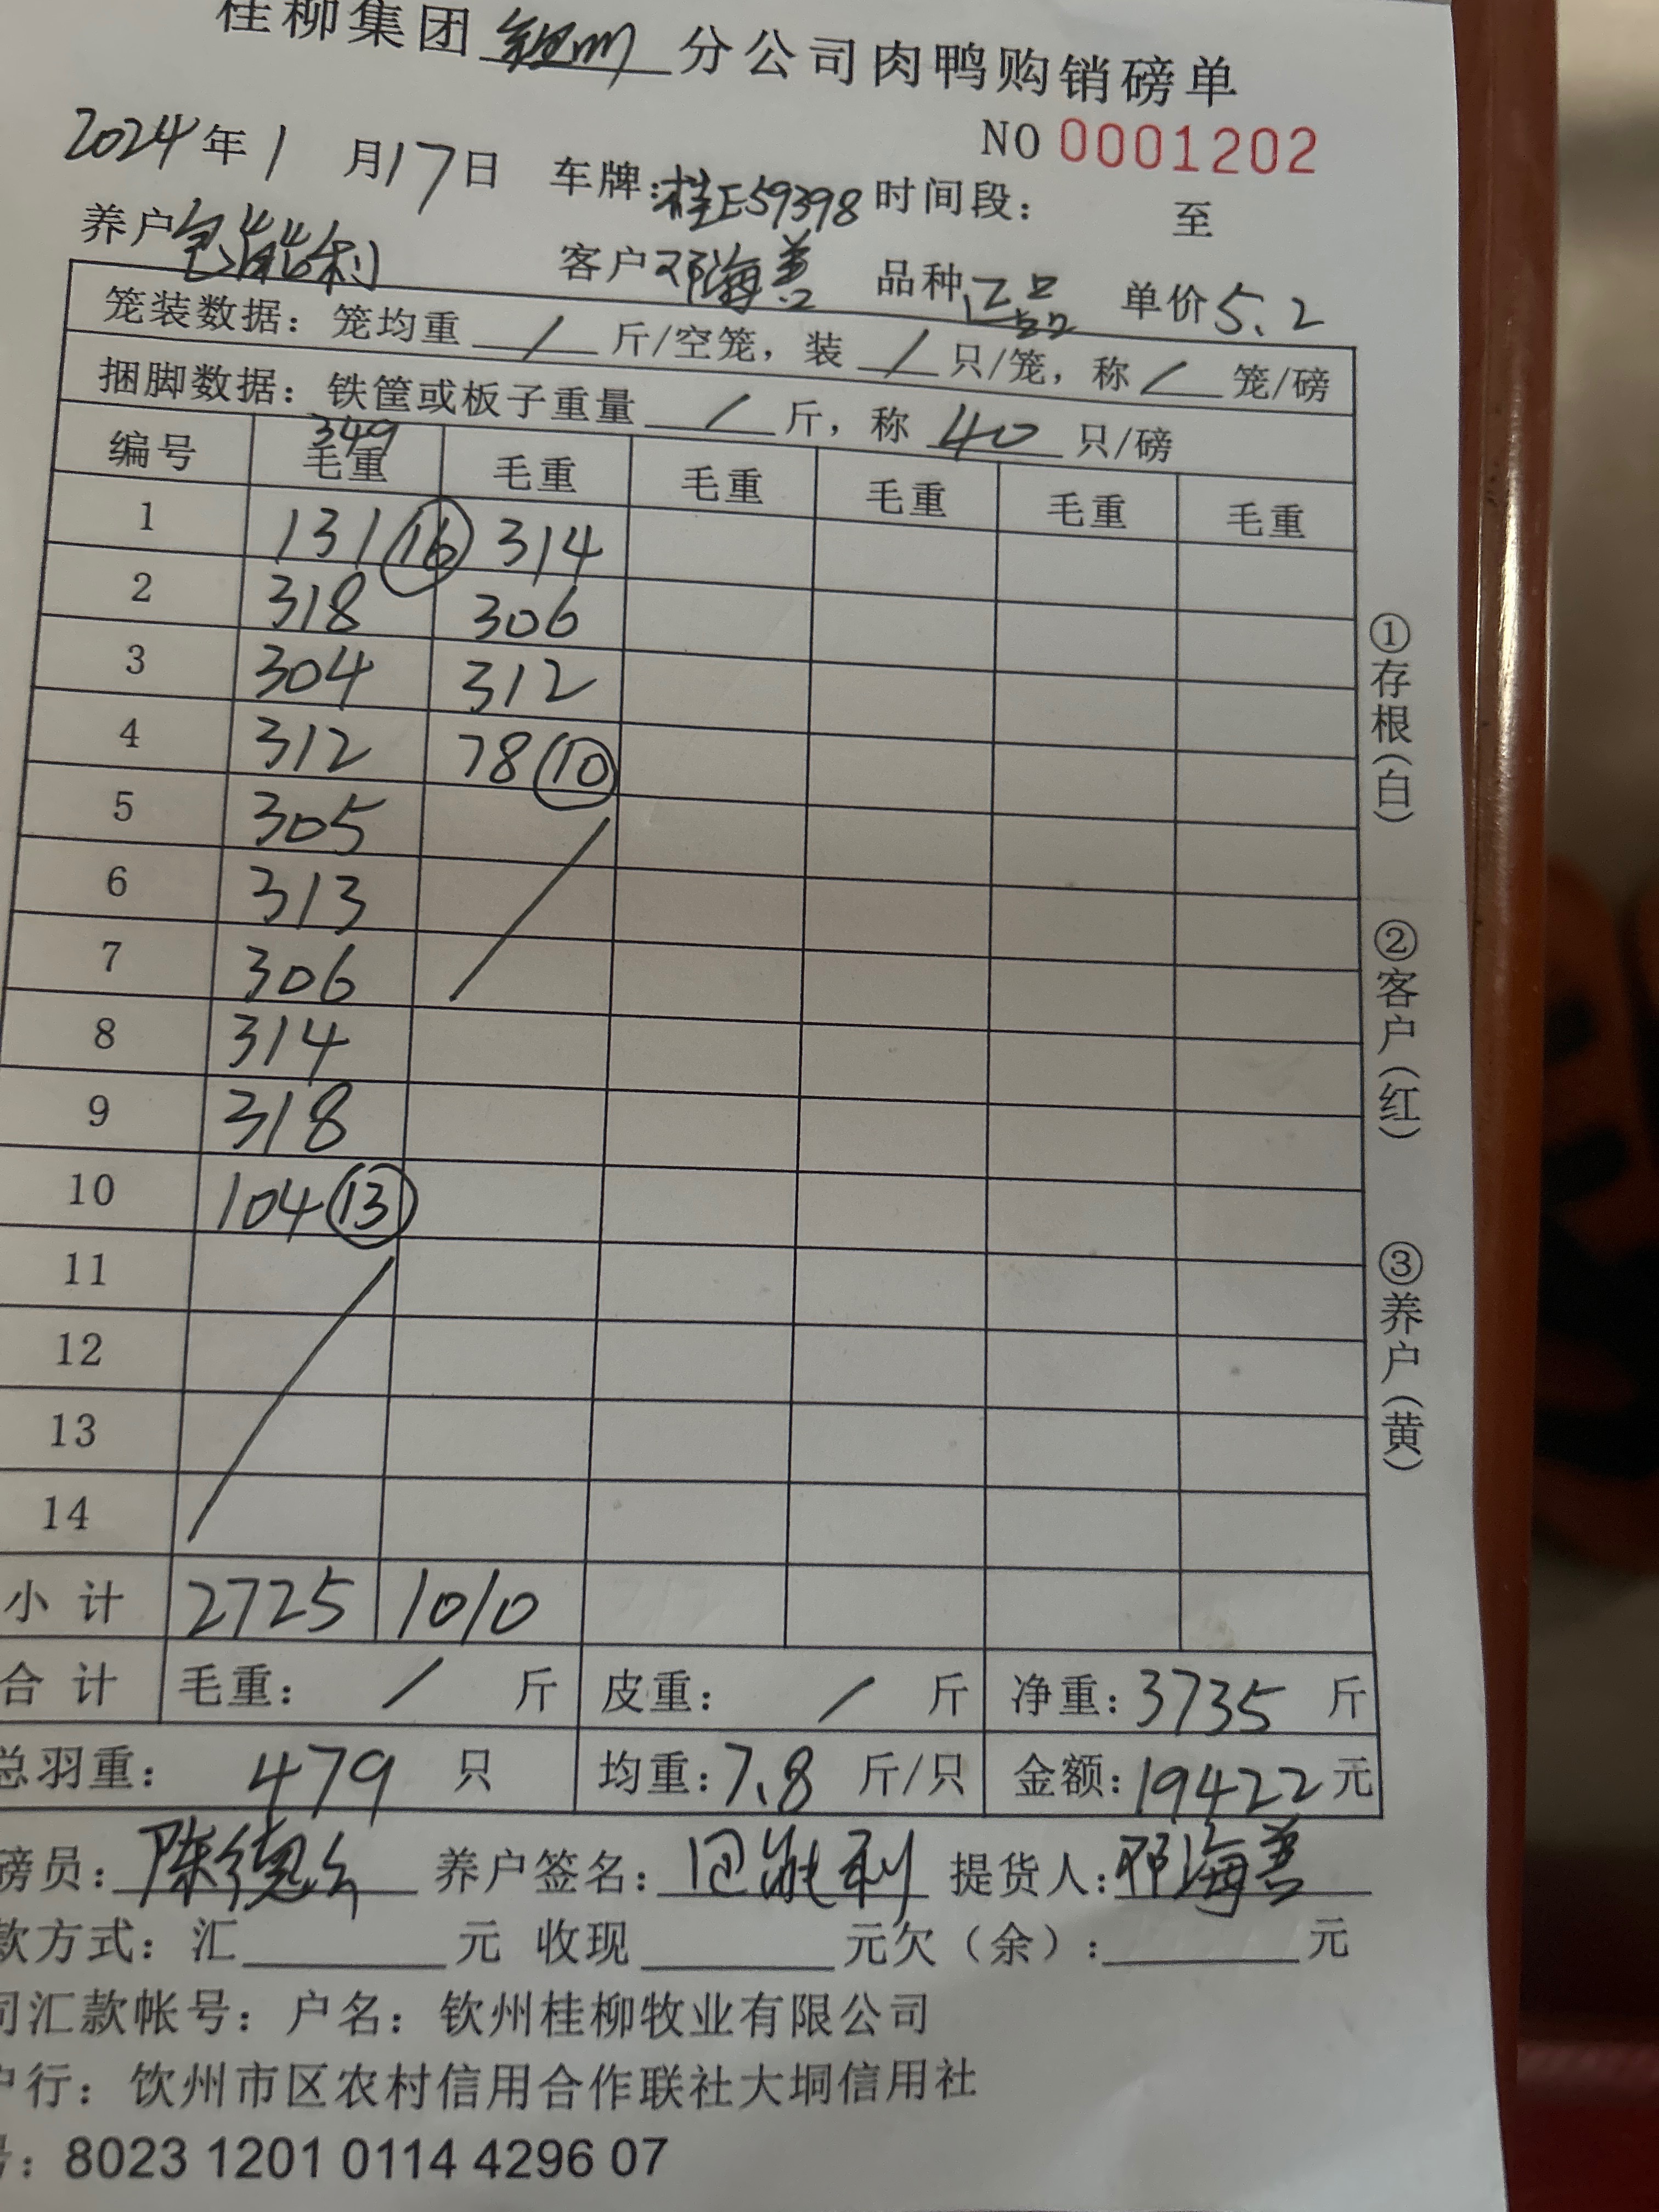 桂柳集团钦州分公司肉鸭购销磅单
NO 0001202
2024年1月17日 车牌:桂E59398 时间段: 至
养户 包能利 客户 邓海善 品种 正品 单价 5.2
笼装数据: 笼均重 / 斤/空笼, 装 / 只/笼, 称 / 笼/磅
捆脚数据: 铁筐或板子重量 / 斤, 称 40 只/磅
349
编号 毛重 毛重 毛重 毛重 毛重 毛重
1 131 16 314
2 318 306
3 304 312
4 312 78 10
5 305
6 313
7 306
8 314
9 318
10 104 13
11
12
13
14
小计 2725 1010
合计 毛重: / 斤 皮重: / 斤 净重: 3735 斤
总羽重: 479 只 均重: 7.8 斤/只 金额: 19422 元
磅员: 陈德 养户签名: 包能利 提货人: 邓海善
款方式: 汇 元 收现 元欠(余): 元
司汇款帐号: 户名: 钦州桂柳牧业有限公司
户行: 钦州市区农村信用合作联社大垌信用社
号: 8023 1201 0114 4296 07
①存根(白)
②客户(红)
③养户(黄)